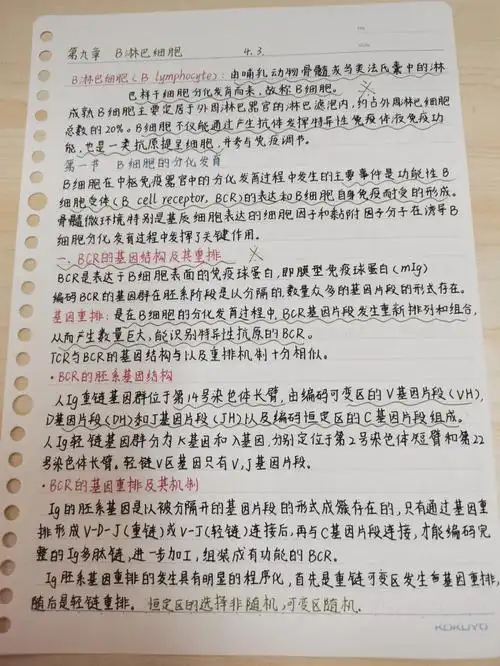 第九章 B淋巴细胞 4.3.
B淋巴细胞(B lymphocyte):由哺乳动物骨髓或鸟类法氏囊中的淋
巴样干细胞分化发育而来,故称B细胞。
成熟B细胞主要定居于外周淋巴器官的淋巴滤泡内,约占外周淋巴细胞
总数的20%。B细胞不仅能通过产生抗体发挥特异性免疫体液免疫功
能,也是一类抗原提呈细胞,并参与免疫调节。
第一节 B细胞的分化发育
B细胞在中枢免疫器官中的分化发育过程中发生的主要事件是功能性B
细胞受体(B cell receptor, BCR)的表达和B细胞自身免疫耐受的形成。
骨髓微环境特别是基质细胞表达的细胞因子和黏附因子分子在诱导B
细胞分化发育过程中发挥了关键作用。
一、BCR的基因结构及其重排
BCR是表达于B细胞表面的免疫球蛋白,即膜型免疫球蛋白(mIg)
编码BCR的基因群在胚系阶段是以分隔的,数量众多的基因片段的形式存在。
基因重排:是在B细胞的分化发育过程中,BCR基因片段发生重新排列和组合,
从而产生数量巨大,能识别特异性抗原的BCR。
TCR与BCR的基因结构与以及重排机制十分相似。
·BCR的胚系基因结构
人Ig重链基因群位于第14号染色体长臂,由编码可变区的V基因片段(VH),
D基因片段(DH)和J基因片段(JH)以及编码恒定区的C基因片段组成。
人Ig轻链基因群分为κ基因和λ基因,分别定位于第2号染色体短臂和第22
号染色体长臂。轻链V区基因只有V,J基因片段。
·BCR的基因重排及其机制
Ig的胚系基因是以被分隔开的基因片段的形式成簇存在的,只有通过基因重
排形成V-D-J(重链)或V-J(轻链)连接后,再与C基因片段连接,才能编码完
整的Ig多肽链,进一步加工,组装成有功能的BCR。
Ig胚系基因重排的发生具有明显的程序化,首先是重链可变区发生基因重排,
随后是轻链重排。恒定区的选择非随机,可变区随机.
KOKUYO